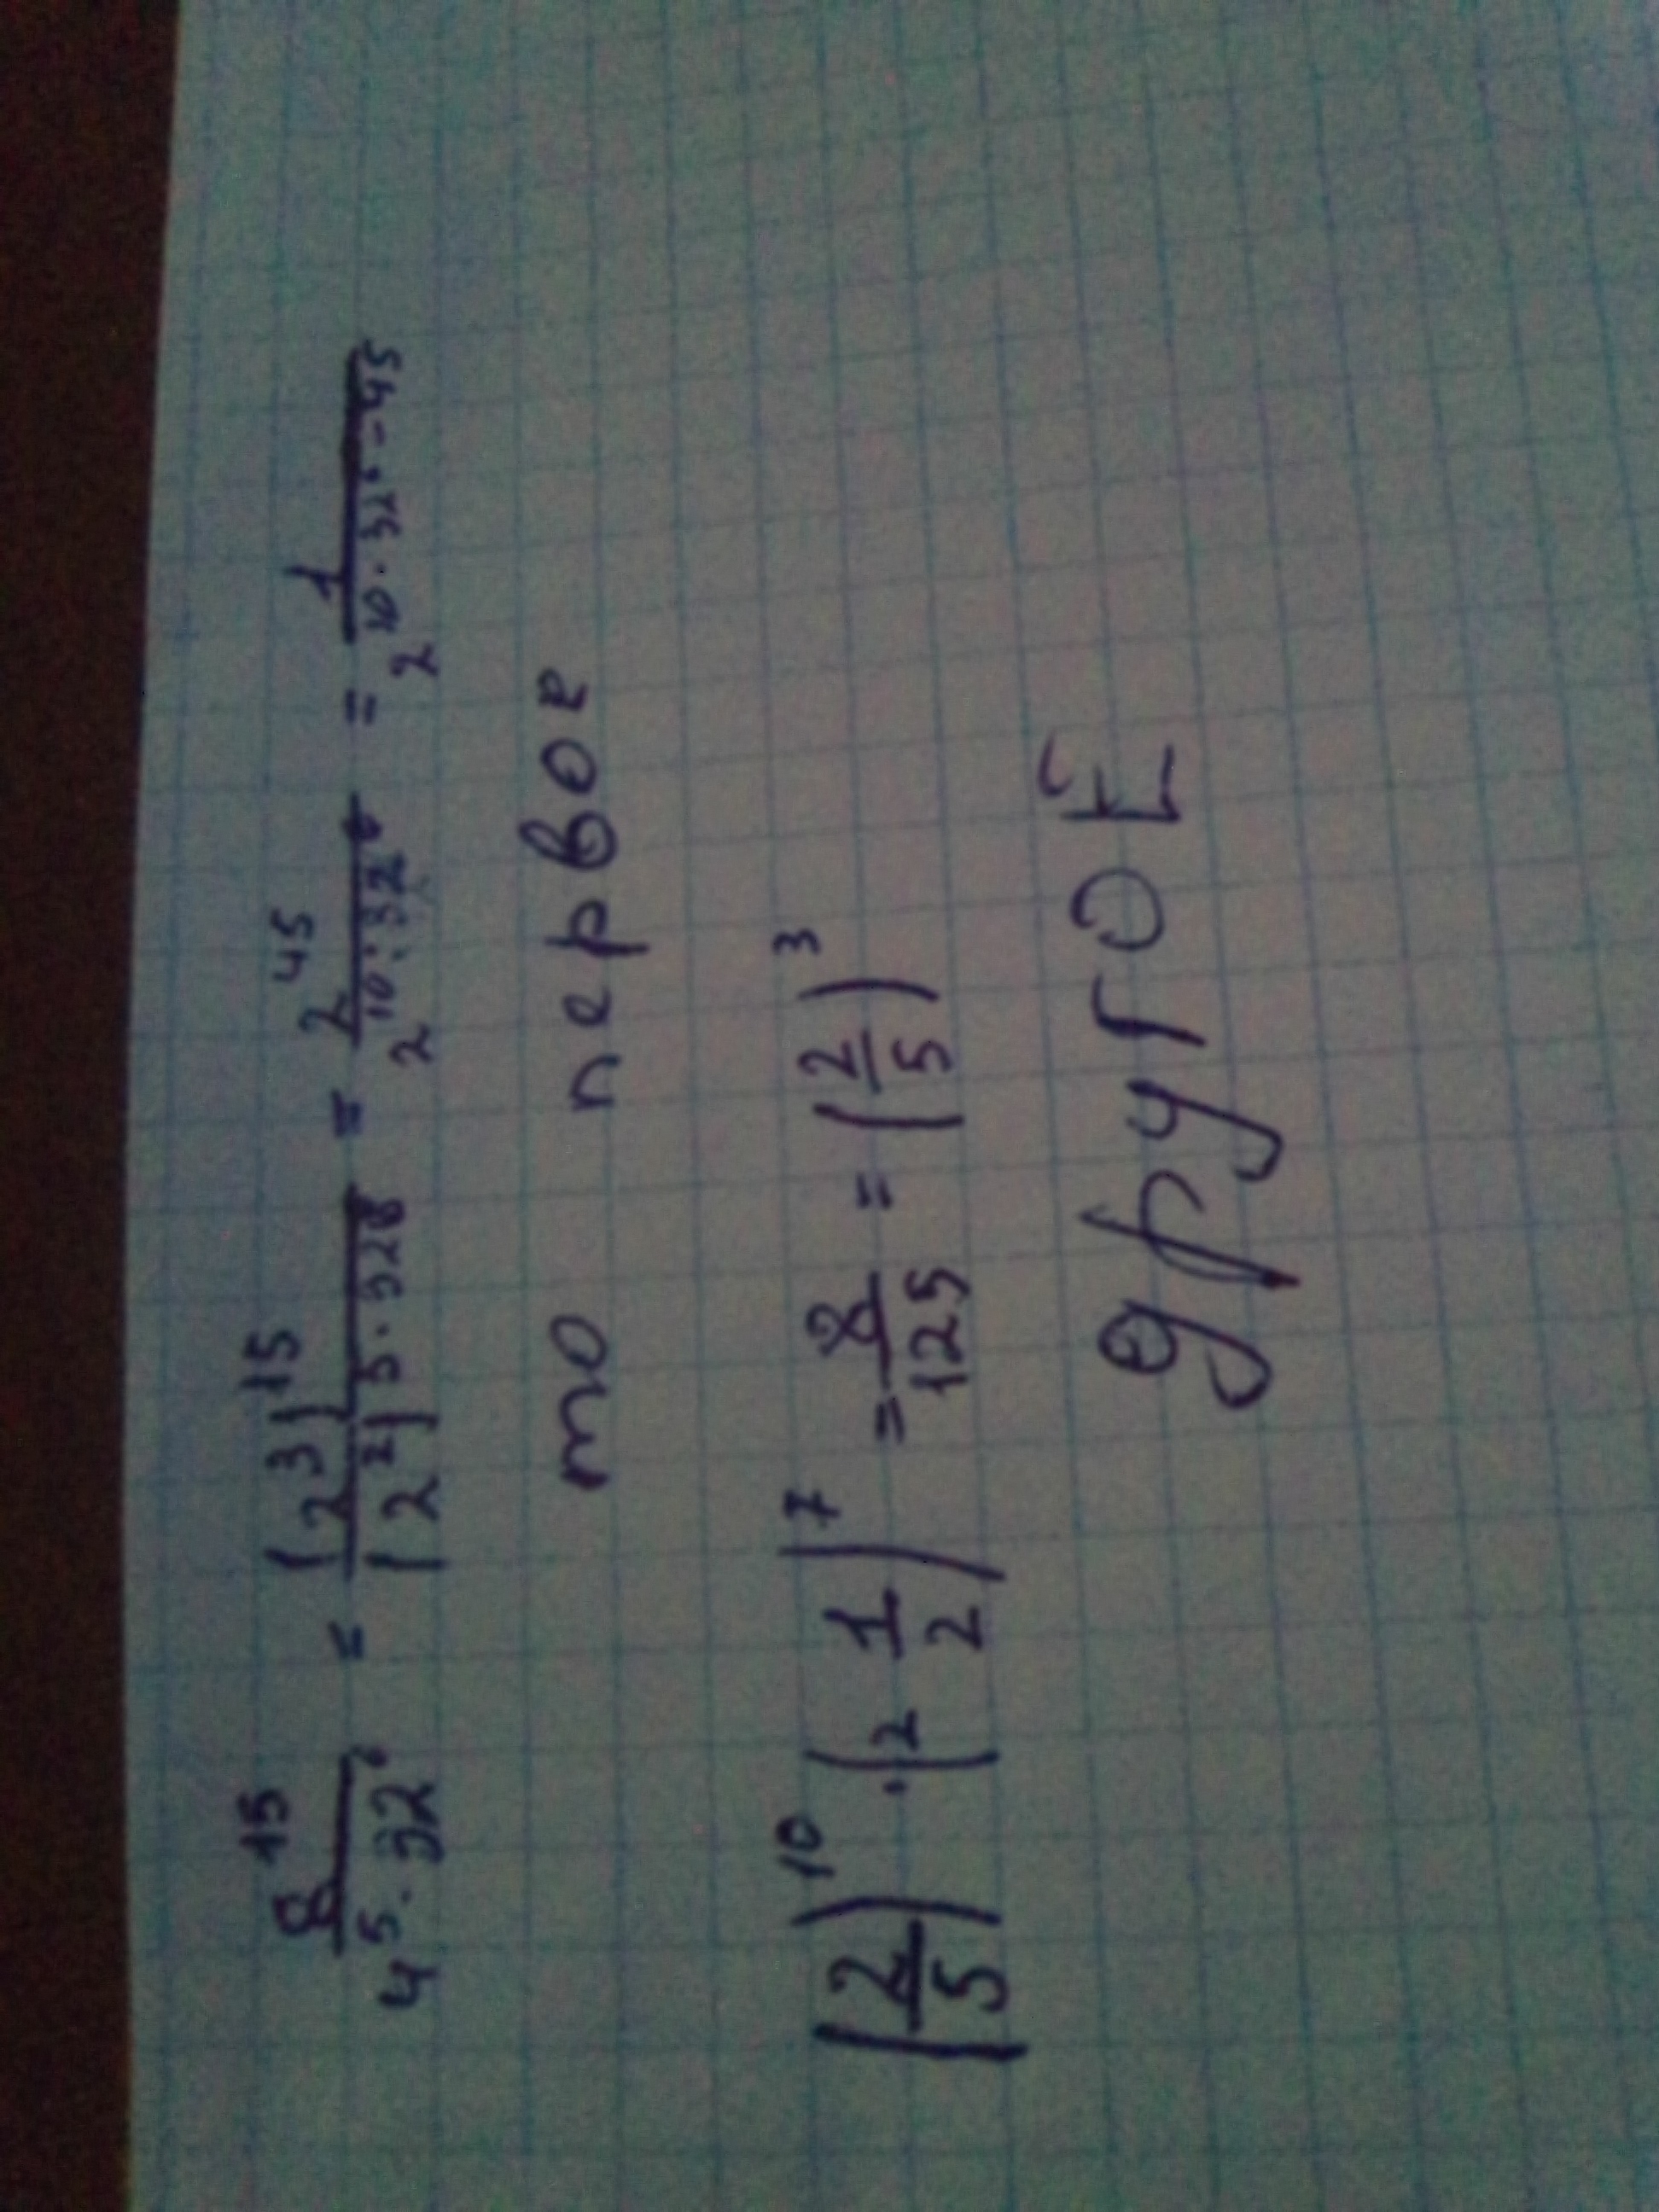 8^15 / 4^5·32^6 = (2^3)^15 / (2^2)^5·32^6 = 2^45 / 2^10·32^6 = 1 / 2^10·32^6-45
то первое
(2/5)^10 · (2 1/2)^7 = 8/125 = (2/5)^3
другоЕ